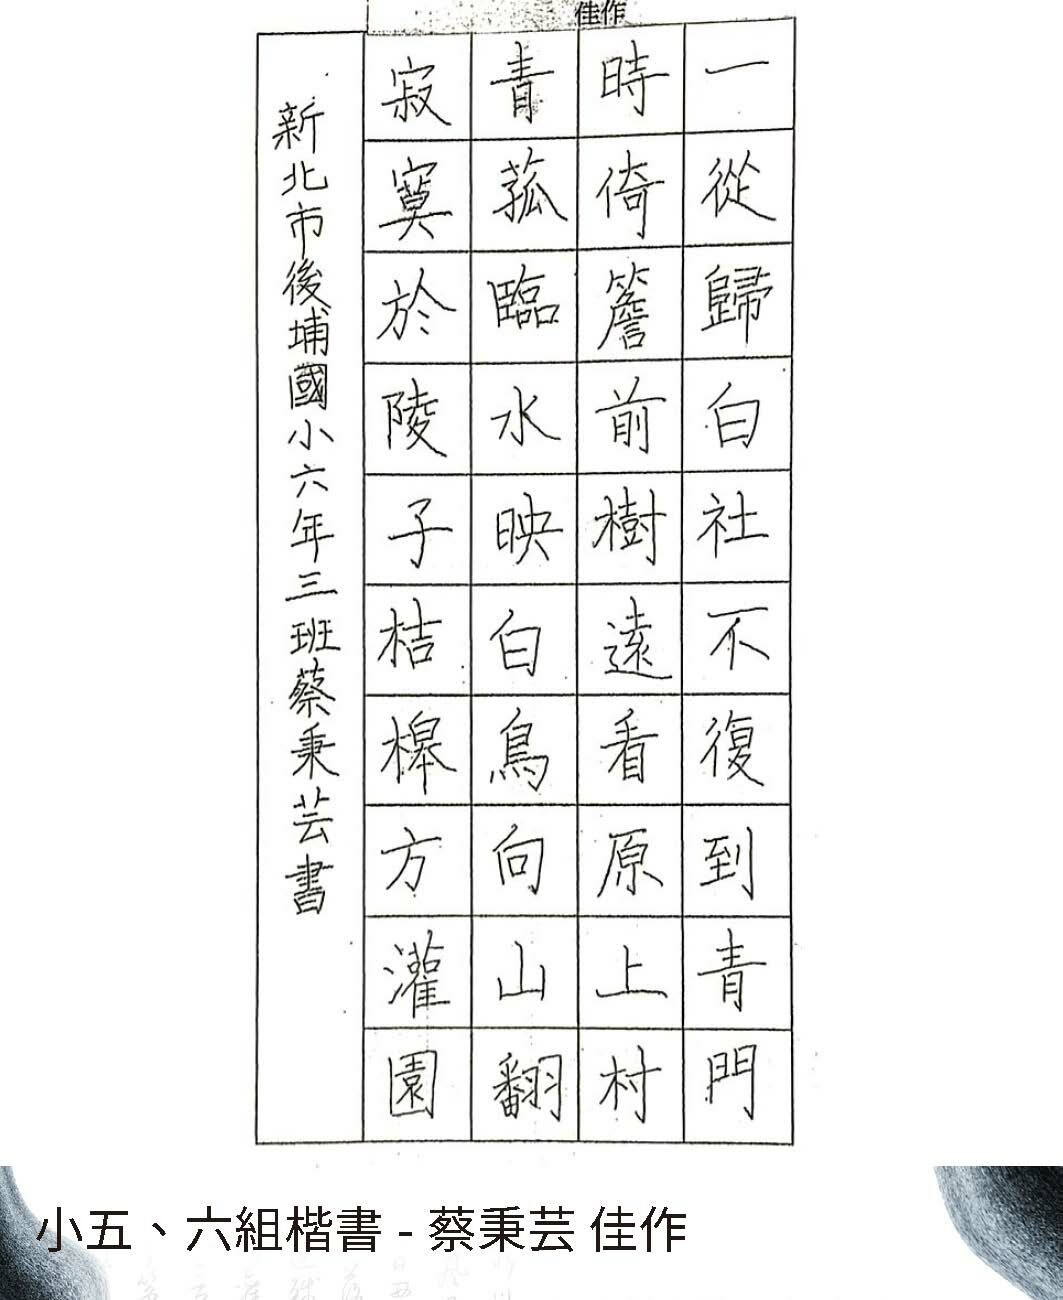 佳作
一從歸白社不復到青門
時倚簷前樹遠看原上村
青菰臨水映白鳥向山翻
寂寞於陵子桔槔方灌園
新北市後埔國小六年三班蔡秉芸書
小五、六組楷書 - 蔡秉芸 佳作